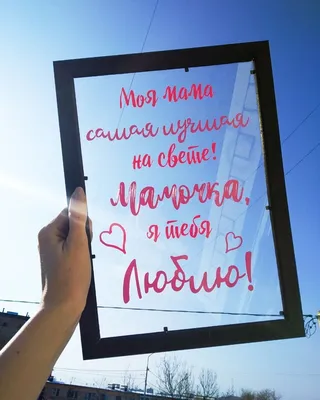 Моя мама
самая лучшая
на свете!
Мамочка,
я тебя
Люблю!